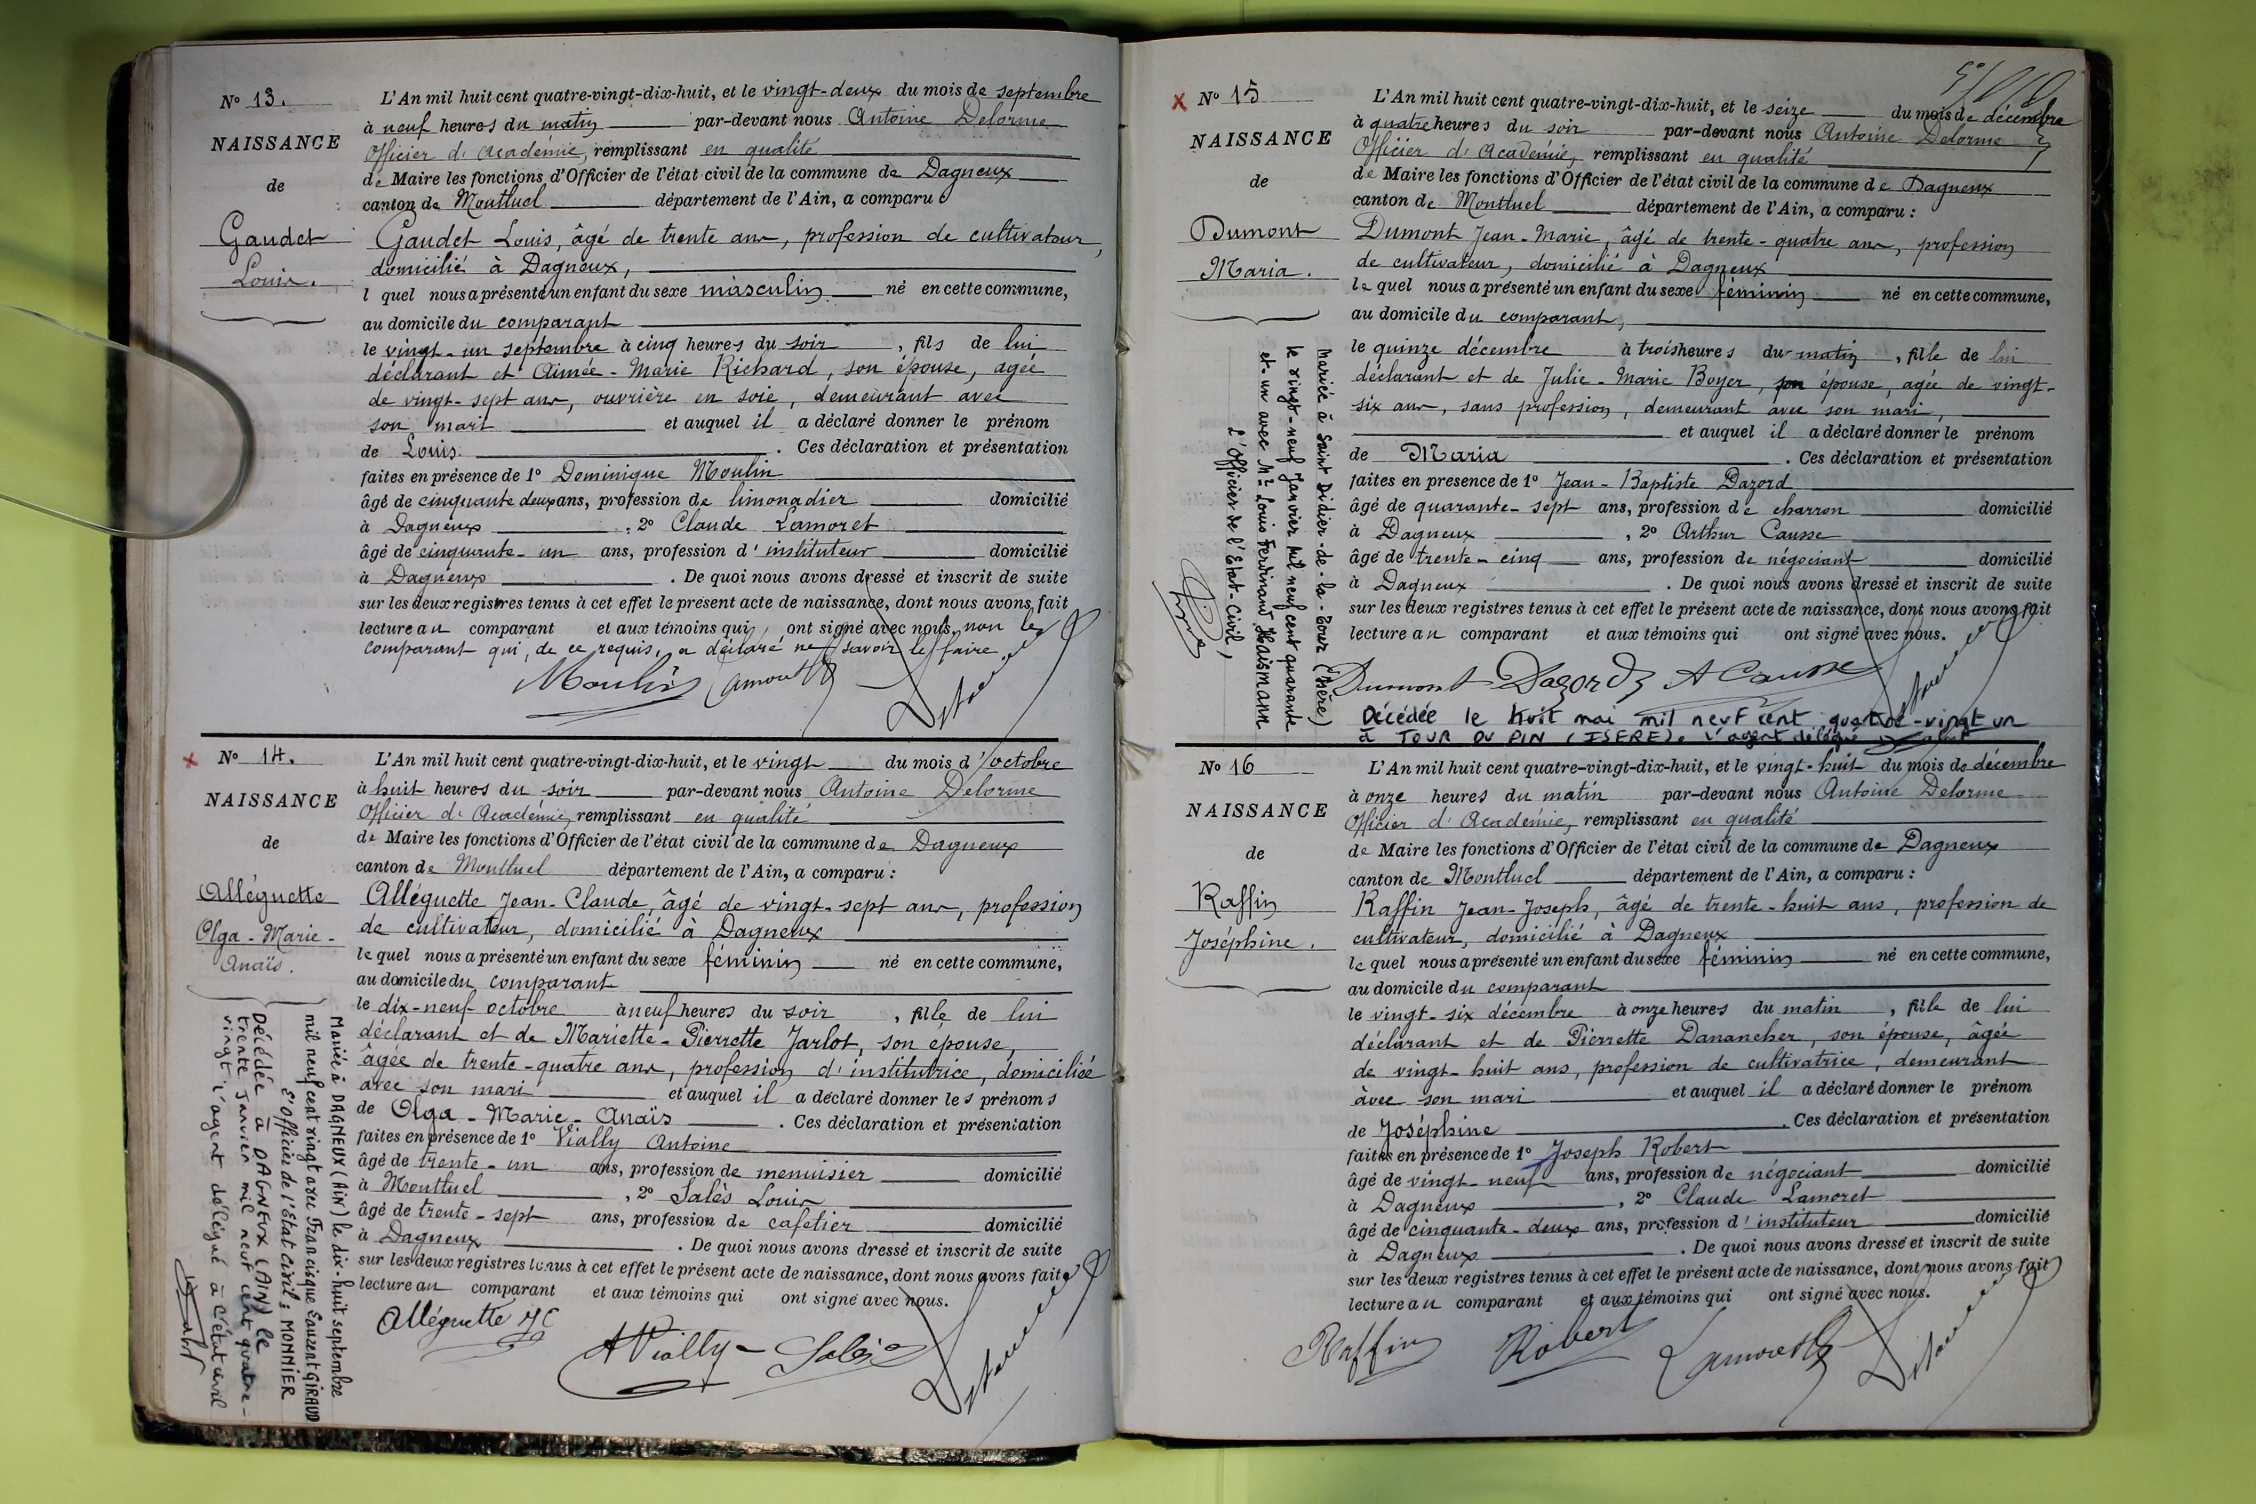 N° 13.
NAISSANCE
de
Gaudet
Louis.
L'An mil huit cent quatre-vingt-dix-huit, et le vingt-deux du mois de septembre
à neuf heures du matin par-devant nous Antoine Delorme
Officier d'Académie, remplissant en qualité
de Maire les fonctions d'Officier de l'état civil de la commune de Dagneux
canton de Montluel département de l'Ain, a comparu
Gaudet Louis, âgé de trente ans, profession de cultivateur,
domicilié à Dagneux,
l quel nous a présenté un enfant du sexe masculin né en cette commune,
au domicile du comparant
le vingt-un septembre à cinq heures du soir, fils de lui
déclarant et Aimée-Marie Richard, son épouse, agée
de vingt-sept ans, ouvrière en soie, demeurant avec
son mari et auquel il a déclaré donner le prénom
de Louis. Ces déclaration et présentation
faites en présence de 1° Dominique Moulin
âgé de cinquante deux ans, profession de limonadier domicilié
à Dagneux, 2° Claude Lamoret
âgé de cinquante-un ans, profession d'instituteur domicilié
à Dagneux. De quoi nous avons dressé et inscrit de suite
sur les deux registres tenus à cet effet le présent acte de naissance, dont nous avons fait
lecture au comparant et aux témoins qui ont signé avec nous, non le
comparant qui, de ce requis, a déclaré ne savoir le faire.
Moulin Lamoret Delorme
N° 14.
NAISSANCE
de
Alléguette
Olga-Marie-
Anaïs.
L'An mil huit cent quatre-vingt-dix-huit, et le vingt du mois d'octobre
à huit heures du soir par-devant nous Antoine Delorme
Officier d'Académie, remplissant en qualité
de Maire les fonctions d'Officier de l'état civil de la commune de Dagneux
canton de Montluel département de l'Ain, a comparu :
Alléguette Jean-Claude, âgé de vingt-sept ans, profession
de cultivateur, domicilié à Dagneux
le quel nous a présenté un enfant du sexe féminin né en cette commune,
au domicile du comparant
le dix-neuf octobre à neuf heures du soir, fille de lui
déclarant et de Mariette-Pierrette Jarlot, son épouse,
âgée de trente-quatre ans, profession d'institutrice, domiciliée
avec son mari et auquel il a déclaré donner les prénoms
de Olga-Marie-Anaïs. Ces déclaration et présentation
faites en présence de 1° Vially Antoine
âgé de trente-un ans, profession de menuisier domicilié
à Montluel, 2° Salès Louis
âgé de trente-sept ans, profession de cafetier domicilié
à Dagneux. De quoi nous avons dressé et inscrit de suite
sur les deux registres tenus à cet effet le présent acte de naissance, dont nous avons fait
lecture au comparant et aux témoins qui ont signé avec nous.
Alléguette JC
A Vially Salès Delorme
Mariée à DAGNEUX (Ain) le dix-huit septembre
mil neuf cent vingt avec Francisque Eauzent GIRAUD
L'Officier de l'Etat Civil : MONNIER
Décédée à DAGNEUX (AIN) le
trente Janvier mil neuf cent quatre-
vingt l'agent délégué à l'état civil
N° 15
NAISSANCE
de
Dumont
Maria.
L'An mil huit cent quatre-vingt-dix-huit, et le seize du mois de décembre
à quatre heures du soir par-devant nous Antoine Delorme
Officier d'Académie, remplissant en qualité
de Maire les fonctions d'Officier de l'état civil de la commune de Dagneux
canton de Montluel département de l'Ain, a comparu :
Dumont Jean-Marie, âgé de trente-quatre ans, profession
de cultivateur, domicilié à Dagneux
le quel nous a présenté un enfant du sexe féminin né en cette commune,
au domicile du comparant,
le quinze décembre à trois heures du matin, fille de lui
déclarant et de Julie-Marie Boyer, son épouse, agée de vingt-
six ans, sans profession, demeurant avec son mari,
et auquel il a déclaré donner le prénom
de Maria. Ces déclaration et présentation
faites en présence de 1° Jean-Baptiste Dazord
âgé de quarante-sept ans, profession de charron domicilié
à Dagneux, 2° Arthur Causse
âgé de trente-cinq ans, profession de négociant domicilié
à Dagneux. De quoi nous avons dressé et inscrit de suite
sur les deux registres tenus à cet effet le présent acte de naissance, dont nous avons fait
lecture au comparant et aux témoins qui ont signé avec nous.
Dumont Dazord A Causse Delorme
Décédée le huit mai mil neuf cent quatre-vingt un
à TOUR DU PIN (ISERE). L'agent délégué
Mariée à Saint Didier-de-la-Tour (Isère)
le vingt-neuf Janvier mil neuf cent quarante
et un avec Mr Louis Ferdinand Haismann
L'Officier de l'Etat-Civil,
N° 16
NAISSANCE
de
Raffin
Joséphine.
L'An mil huit cent quatre-vingt-dix-huit, et le vingt-huit du mois de décembre
à onze heures du matin par-devant nous Antoine Delorme
Officier d'Académie, remplissant en qualité
de Maire les fonctions d'Officier de l'état civil de la commune de Dagneux
canton de Montluel département de l'Ain, a comparu :
Raffin Jean-Joseph, âgé de trente-huit ans, profession de
cultivateur, domicilié à Dagneux
le quel nous a présenté un enfant du sexe féminin né en cette commune,
au domicile du comparant
le vingt-six décembre à onze heures du matin, fille de lui
déclarant et de Pierrette Danancher, son épouse, âgée
de vingt-huit ans, profession de cultivatrice, demeurant
avec son mari et auquel il a déclaré donner le prénom
de Joséphine. Ces déclaration et présentation
faites en présence de 1° Joseph Robert
âgé de vingt-neuf ans, profession de négociant domicilié
à Dagneux, 2° Claude Lamoret
âgé de cinquante-deux ans, profession d'instituteur domicilié
à Dagneux. De quoi nous avons dressé et inscrit de suite
sur les deux registres tenus à cet effet le présent acte de naissance, dont nous avons fait
lecture au comparant et aux témoins qui ont signé avec nous.
Raffin Robert Lamoret Delorme